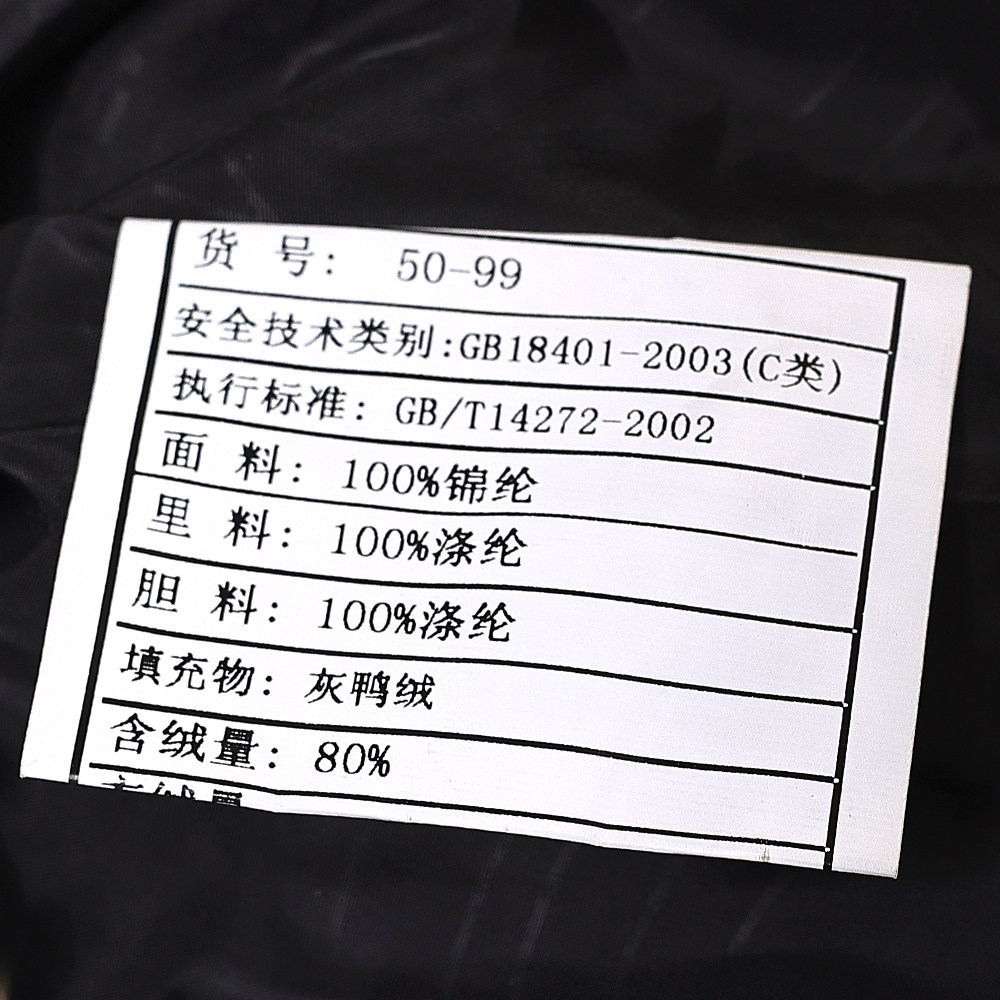 货 号: 50-99
安全技术类别:GB18401-2003(C类)
执行标准: GB/T14272-2002
面 料: 100%锦纶
里 料: 100%涤纶
胆 料: 100%涤纶
填充物: 灰鸭绒
含绒量: 80%